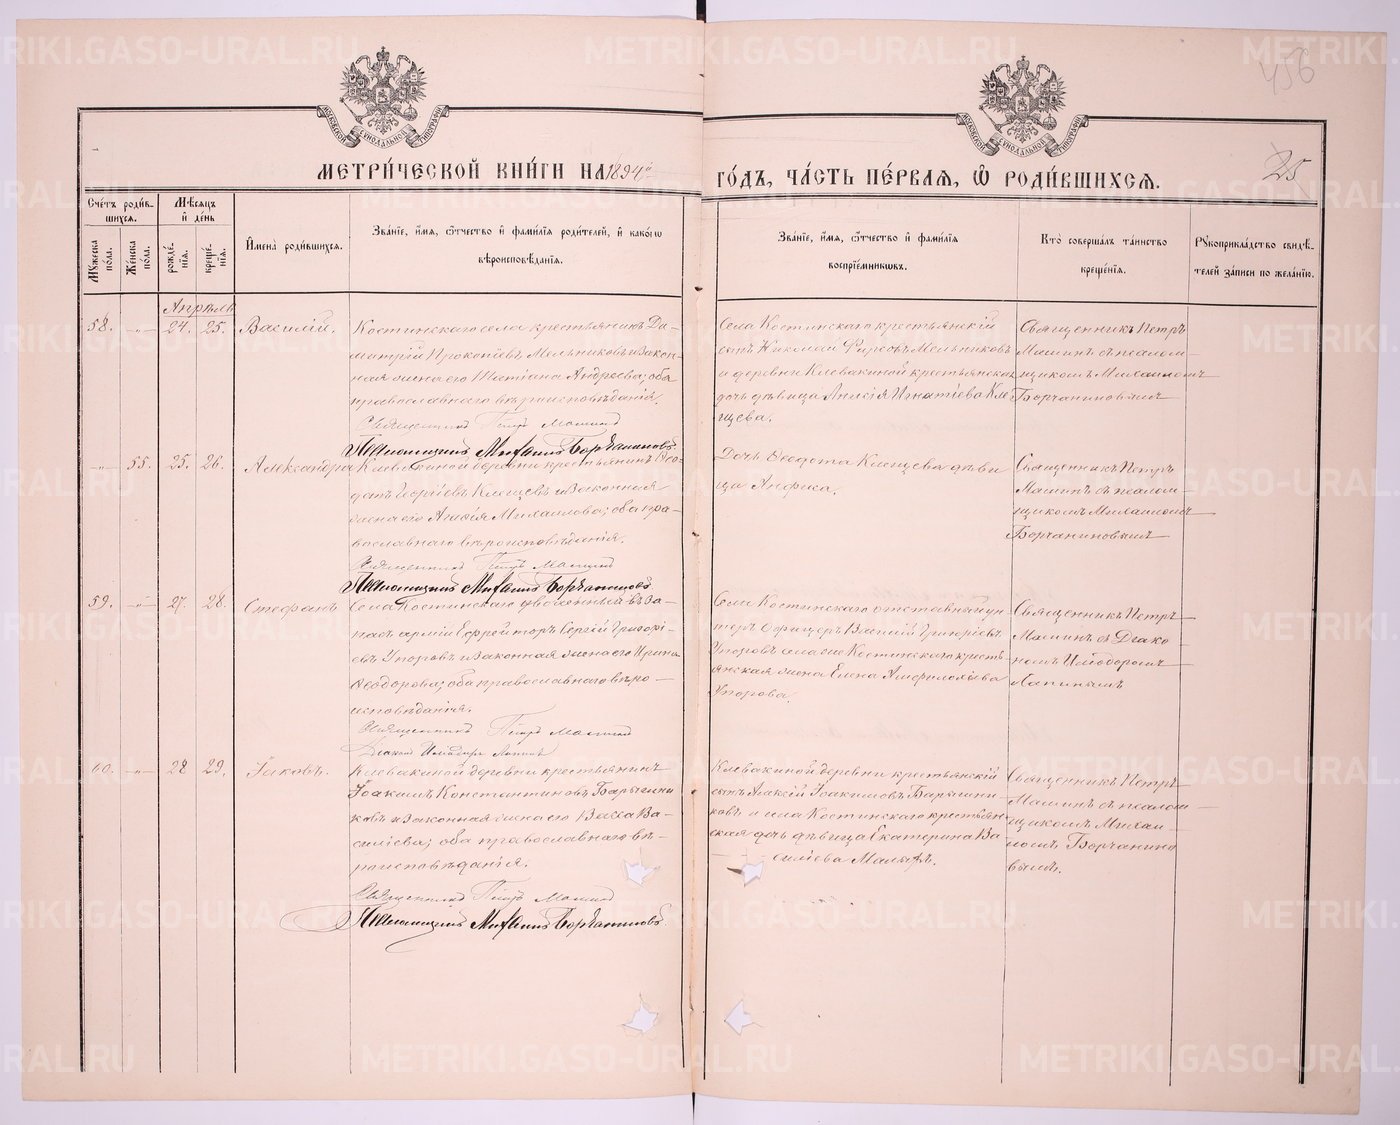 456
МОСКОВСКОЙ СѴНОДАЛЬНОЙ ТИПОГРАФІИ
МОСКОВСКОЙ СѴНОДАЛЬНОЙ ТИПОГРАФІИ
МЕТРИ́ЧЕСКОЙ КНИ́ГИ НА 1894й
ГО́ДЪ, ЧА́СТЬ ПЕ́РВАЯ, Ѡ РОДИ́ВШИХСЯ.
25
Сче́тъ роди́вшихся.
Мѣ́сяцъ и де́нь
Му́жеска по́ла.
Же́нска по́ла.
рожде́нїя.
креще́нїя.
И҆мена̀ роди́вшихся.
Зва́нїе, и҆́мя, ѻ҆́тчество и҆ фами́лїя роди́телей, и҆ како́гѡ
вѣроисповѣ́данїя.
Зва́нїе, и҆́мя, ѻ҆́тчество и҆ фами́лїя
воспрїе́мникѡвъ.
Кто̀ соверша́лъ та́инство
креще́нїя.
Рꙋкоприкла́дство свидѣ́-
телей за́писи по жела́нїю.
Апрѣль
58. -„- 24. 25. Василій.
Костинскаго села крестьянинъ Ди-
митрій Прокопіевъ Мельниковъ и закон-
ная жена его Татіана Андреева; оба
православнаго вѣроисповѣданія.
Священникъ Петръ Машинъ
Псаломщикъ Михаилъ Борчаниновъ
Села Костинскаго крестьянскій
сынъ Николай Фирсовъ Мельниковъ
и деревни Клевакиной крестьянская
дочь дѣвица Анисія Игнатіева Кле-
щева.
Священникъ Петръ
Машинъ съ псалом-
щикомъ Михаиломъ
Борчаниновымъ
-„- 55. 25. 26. Александра
Клевакиной деревни крестьянинъ Ѳео-
дотъ Георгіевъ Клещевъ и законная
жена его Михаилова; оба пра-
вославнаго вѣроисповѣданія.
Священникъ Петръ Машинъ
Псаломщикъ Михаилъ Борчаниновъ
Дочь Ѳеодота Клещева дѣви-
ца Анфиса.
Священникъ Петръ
Машинъ съ псалом-
щикомъ Михаиломъ
Борчаниновымъ
59. -„- 27. 28. Стефанъ
Села Костинскаго уволенный въ за-
пасъ арміи Ефрейторъ Сергій Григорі-
евъ Упоровъ и законная жена его Ирина
Ѳеодорова; оба православнаго вѣро-
исповѣданія.
Священникъ Петръ Машинъ
Діаконъ Лапинъ
Села Костинскаго отставный ун-
теръ Офицеръ Василій Григоріевъ
Упоровъ села Костинскаго кресть-
янская жена Елена Амфилохіева
Упорова.
Священникъ Петръ
Машинъ съ Діако-
номъ
Лапинымъ
60. -„- 28 29. Іаковъ.
Клевакиной деревни крестьянинъ
Іоакимъ Константиновъ Барышни-
ковъ и законная жена его Васса Ва-
силіева; оба православнаго вѣ-
роисповѣданія.
Священникъ Петръ Машинъ
Псаломщикъ Михаилъ Борчаниновъ.
Клевакиной деревни крестьянскій
сынъ Алексій Іоакимовъ Барышни-
ковъ и села Костинскаго крестьян-
ская дочь дѣвица Екатерина Ва-
силіева Малыхъ.
Священникъ Петръ
Машинъ съ псалом-
щикомъ Михаи-
ломъ Борчанино-
вымъ.
METRIKI.GASO-URAL.RU